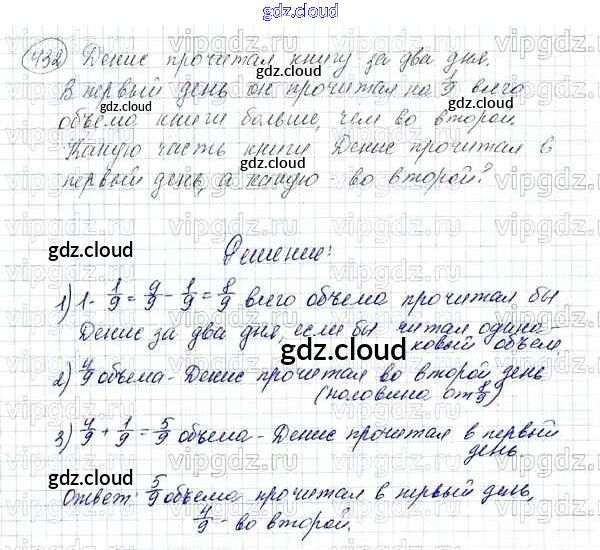 gdz.cloud
432 Денис прочитал книгу за два дня.
В первый день он прочитал на 1/9 всего
объёма книги больше, чем во второй.
Какую часть книги Денис прочитал в
первый день, а какую - во второй?
Решение:
1) 1 - 1/9 = 9/9 - 1/9 = 8/9 всего объема прочитал бы
Денис за два дня, если бы читал одина-
ковый объем.
2) 4/9 объема - Денис прочитал во второй день
(половина от 8/9)
3) 4/9 + 1/9 = 5/9 объема - Денис прочитал в первый
день.
Ответ: 5/9 объема прочитал в первый день,
4/9 - во второй.
gdz.cloud
gdz.cloud
gdz.cloud
gdz.cloud
gdz.cloud
gdz.cloud
gdz.cloud
gdz.cloud
gdz.cloud
vipgdz.com